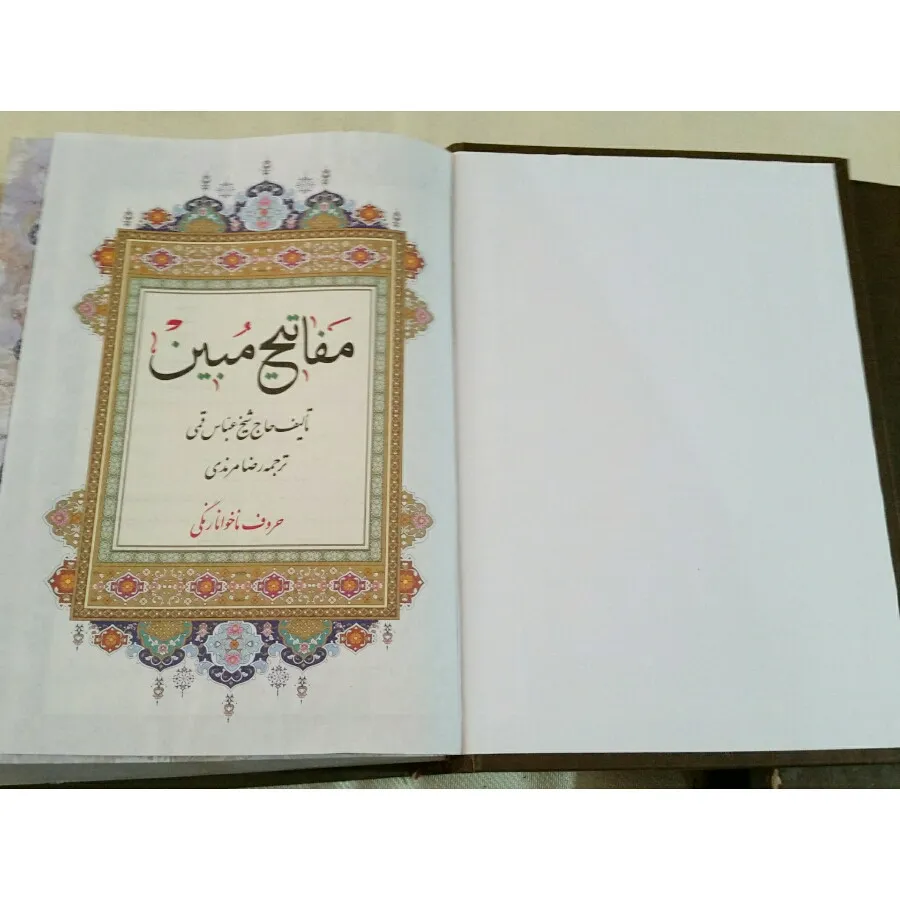 مفاتیح مُبین
تألیف حاج شیخ عباس قمی
ترجمه رضا مرندی
حروف ناخوانا رنگی